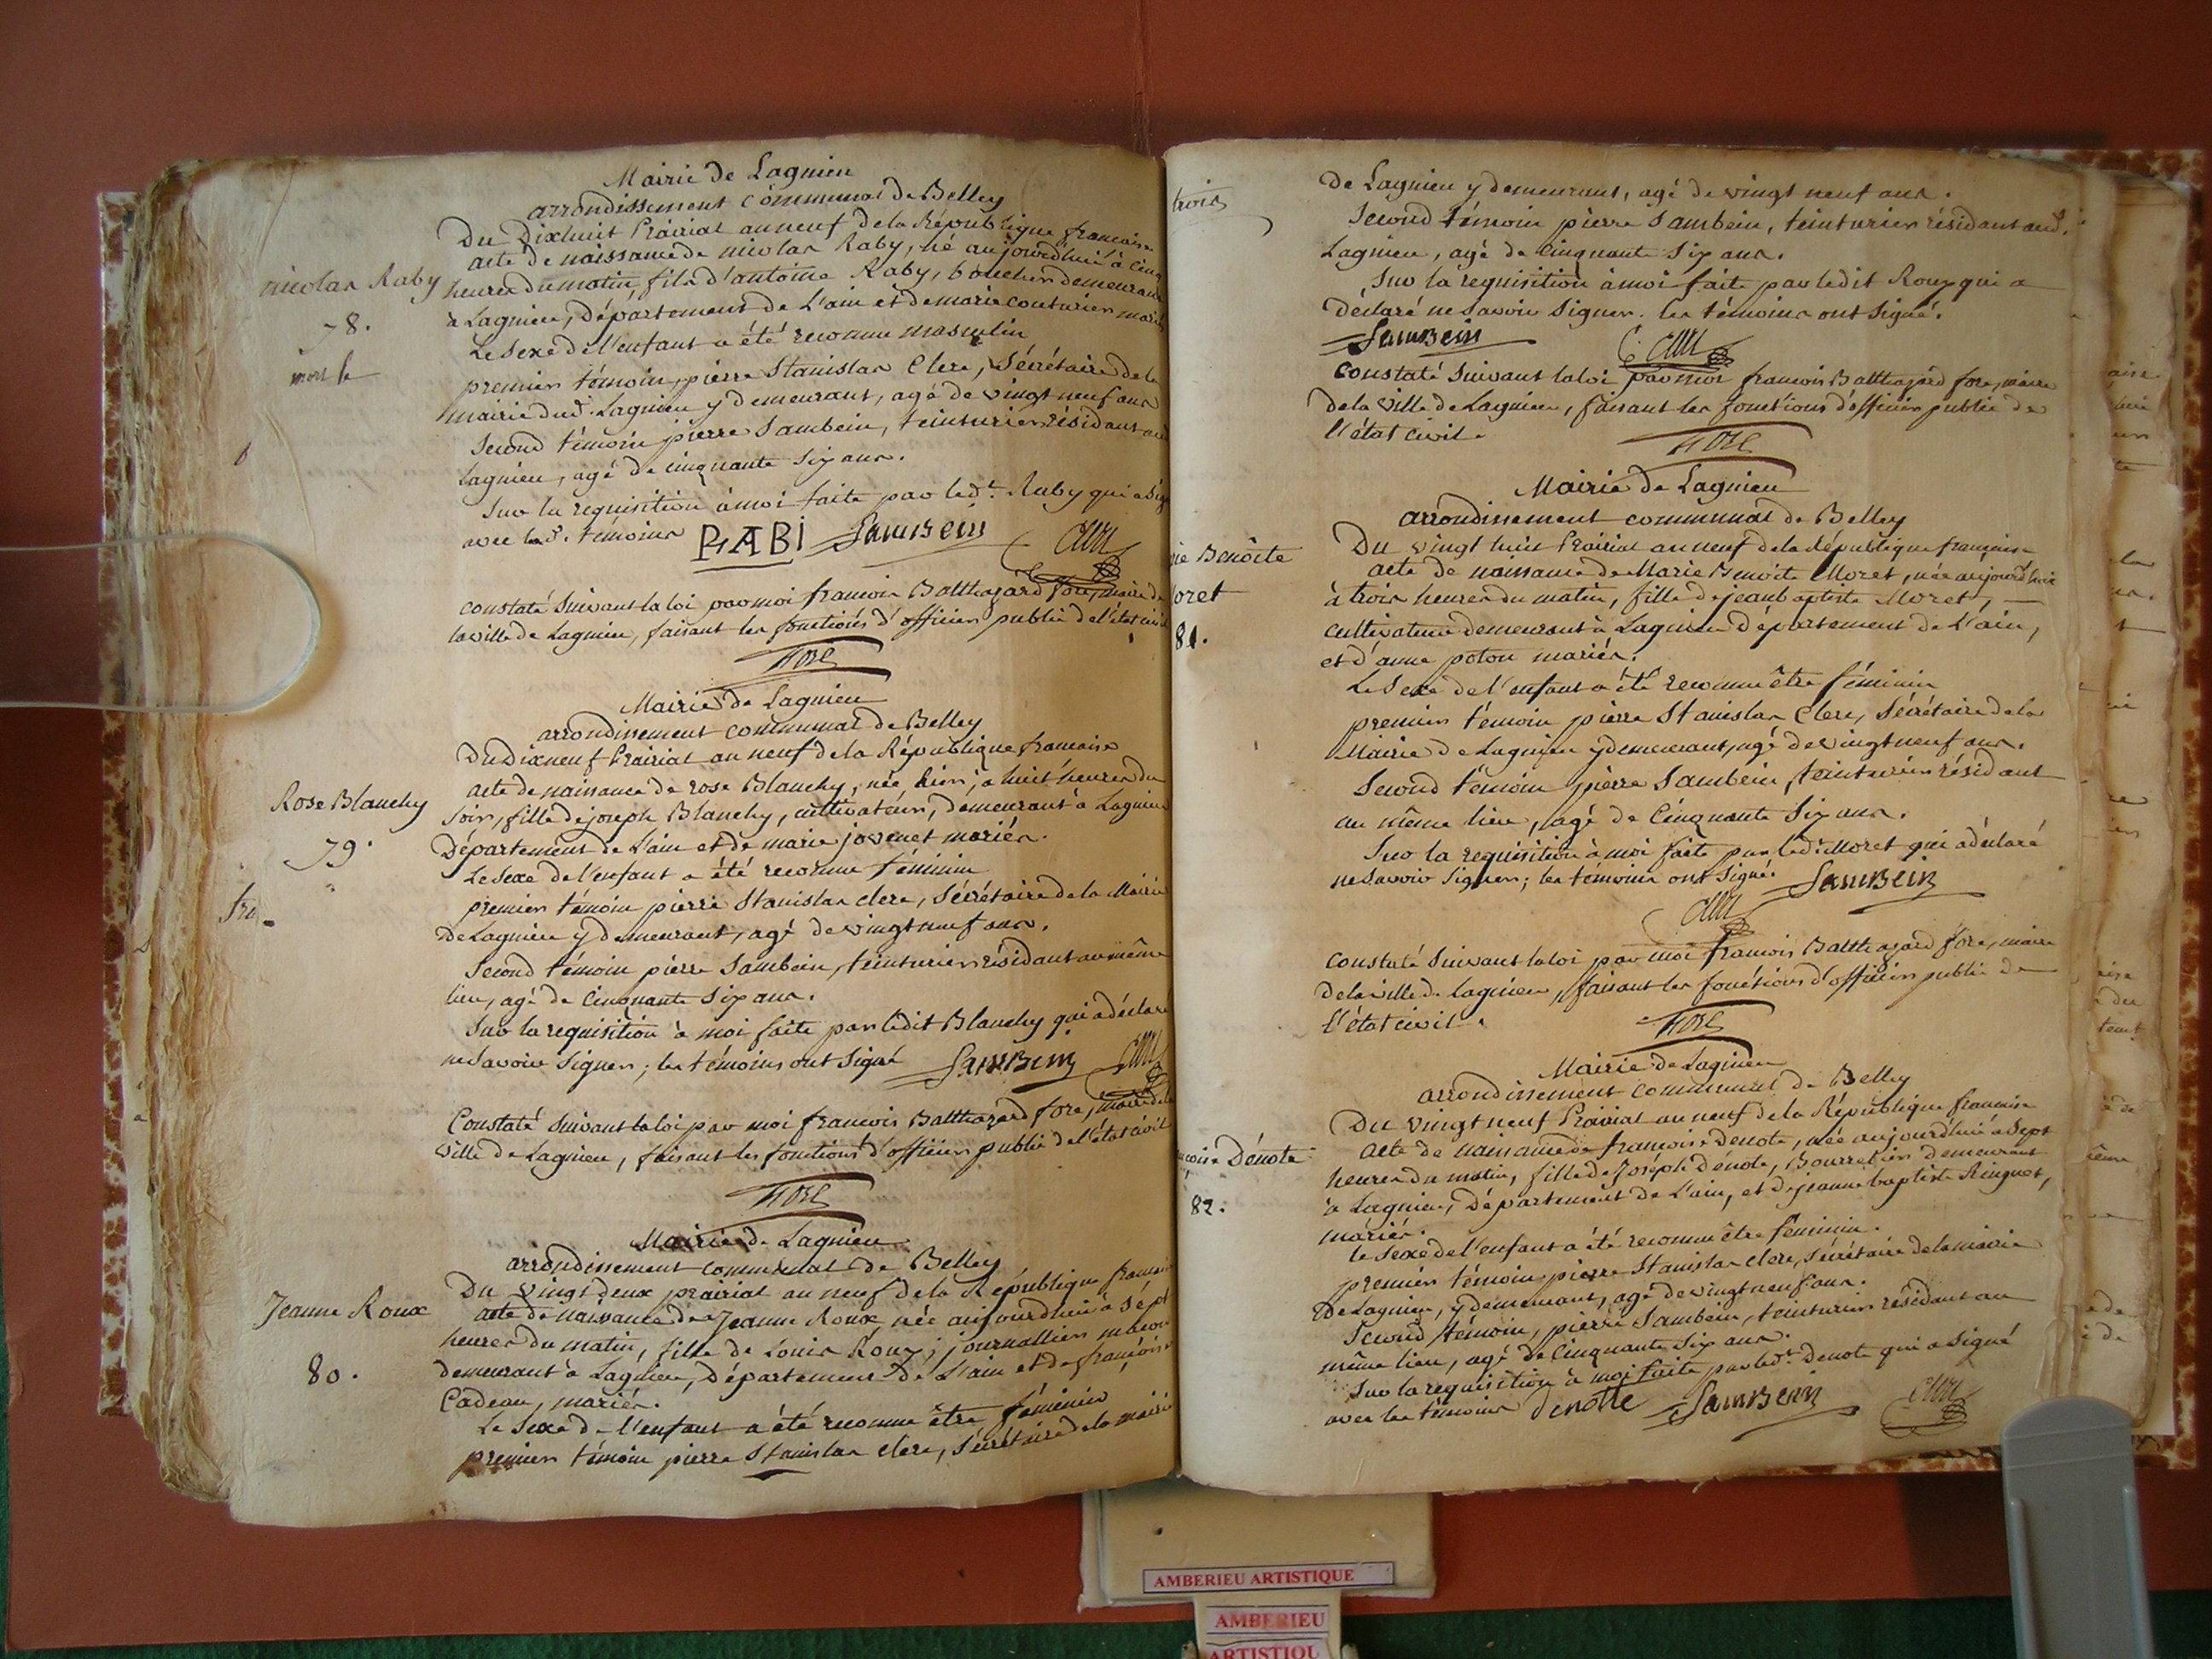 Mairie de Lagnieu
arrondissement communal de Belley
Du Dixhuit Prairial an neuf de la République francaise
acte de naissance de nicolas Raby, né aujourdhui à cinq
nicolas Raby
heures du matin, fils d'antoine Raby, boucher demeurant
à Lagnieu, Département de L'ain et de marie couturier mariés
78.
Le Sexe de l'enfant a été reconnu masculin
mort le
premier témoin, pierre Stanislas Clerc, Sécrétaire de la
mairie dud. Lagnieu y demeurant, agé de vingt neuf ans
Second témoin pierre Sambein, teinturier résidant aud
Lagnieu, agé de cinquante Six ans.
Sur la requisition à moi faite par led.t Raby qui a Sig
avec les d. témoins RABI SamBein Clerc
constaté Suivant la loi par moi francois Balthazard fore, maire de
la ville de Lagnieu, faisant les fonctions d'officier public de l'état civil
FORE
Mairie de Lagnieu
arrondissement communal de Belley
Du Dixneuf Prairial an neuf de la République francaise
acte de naissance de rose Blanchy, née hier, à huit heures du
Rose Blanchy
Soir, fille de joseph Blanchy, cultivateur, demeurant à Lagnieu
79.
Département de L'ain et de marie jovenet mariés.
Le Sexe de l'enfant a été reconnu féminin
premier témoin pierre Stanislas clerc, Sécrétaire de la Mairie
de Lagnieu y demeurant, agé de vingt neuf ans.
Second témoin pierre Sambein, teinturier résidant au même
lieu, agé de Cinquante Six ans.
Sur la requisition à moi faite par ledit Blanchy qui a déclaré
ne Savoir Signer; les témoins ont Signé SamBein Clerc
Constaté Suivant la loi par moi francois Balthazard fore, maire de la
ville de Lagnieu, faisant les fonctions d'officier public de l'état civil
FORE
Mairie de Lagnieu
arrondissement communal de Belley
Du vingt deux prairial an neuf de la République francaise
Jeanne Roux
acte de naissance de Jeanne Roux née aujourdhui à Sept
heures du matin, fille de Louis Roux, journallier macon
80.
demeurant à Lagnieu, département de L'ain et de françoise
Cadeau, mariés.
Le Sexe de l'enfant a été reconnu être féminin
premier témoin pierre Stanislas clerc, Sécrétaire de la mairie
trois
de Lagnieu y demeurant, agé de vingt neuf ans.
Second témoin pierre Sambein, teinturier résidant aud.
Lagnieu, agé de Cinquante Six ans.
Sur la requisition à moi faite par ledit Roux qui a
déclaré ne Savoir Signer. les témoins ont Signé.
SamBein Clerc
Constaté Suivant la loi par moi francois Balthazard fore, maire
de la Ville de Lagnieu, faisant les fonctions d'officier public de
l'état civil.
FORE
Mairie de Lagnieu
arrondissement communal de Belley
Du vingt huit Prairial an neuf de la République française
rie Benôite
acte de naissance de Marie Benoite Moret, née aujourdhui
oret
à trois heures du matin, fille de jeanbaptiste Moret,
81.
cultivateur demeurant à Lagnieu Département de L'ain,
et d'anne poton mariés.
Le Sexe de l'enfant a été reconnu être féminin
premier témoin pierre Stanislas Clerc, Sécrétaire de la
Mairie de Lagnieu y demeurant, agé de vingt neuf ans.
Second témoin pierre Sambein, teinturier résidant
au même lieu, agé de Cinquante Six ans.
Sur la requisition à moi faite par led.t Moret qui a déclaré
ne Savoir Signer; les témoins ont Signé. SamBein
Clerc
constaté Suivant la loi par moi francois Balthazard fore, maire
de la ville de lagnieu, faisant les fonctions d'officier public de
l'état civil.
FORE
Mairie de Lagnieu
arrondissement communal de Belley
Du vingt neuf Prairial an neuf de la République francaise
çoise Dénote
acte de naissance de francoise denote, née aujourdhui à Sept
heures du matin, fille de Joseph Dénote, Bourrelier demeurant
82.
à Lagnieu, Département de L'ain, et de jeanne baptiste Ringuet,
mariés.
le Sexe de l'enfant a été reconnu être féminin.
premier témoin pierre Stanislas clerc, Sécrétaire de la mairie
de Lagnieu, y demeurant, agé de vingt neuf ans.
Second témoin, pierre Sambein, teinturier résidant au
même lieu, agé de Cinquante Six ans.
Sur la requisition à moi faite par led.t Denote qui a Signé
avec les témoins denotte SamBein Clerc
AMBERIEU ARTISTIQUE
AMBERIEU
ARTISTIQU